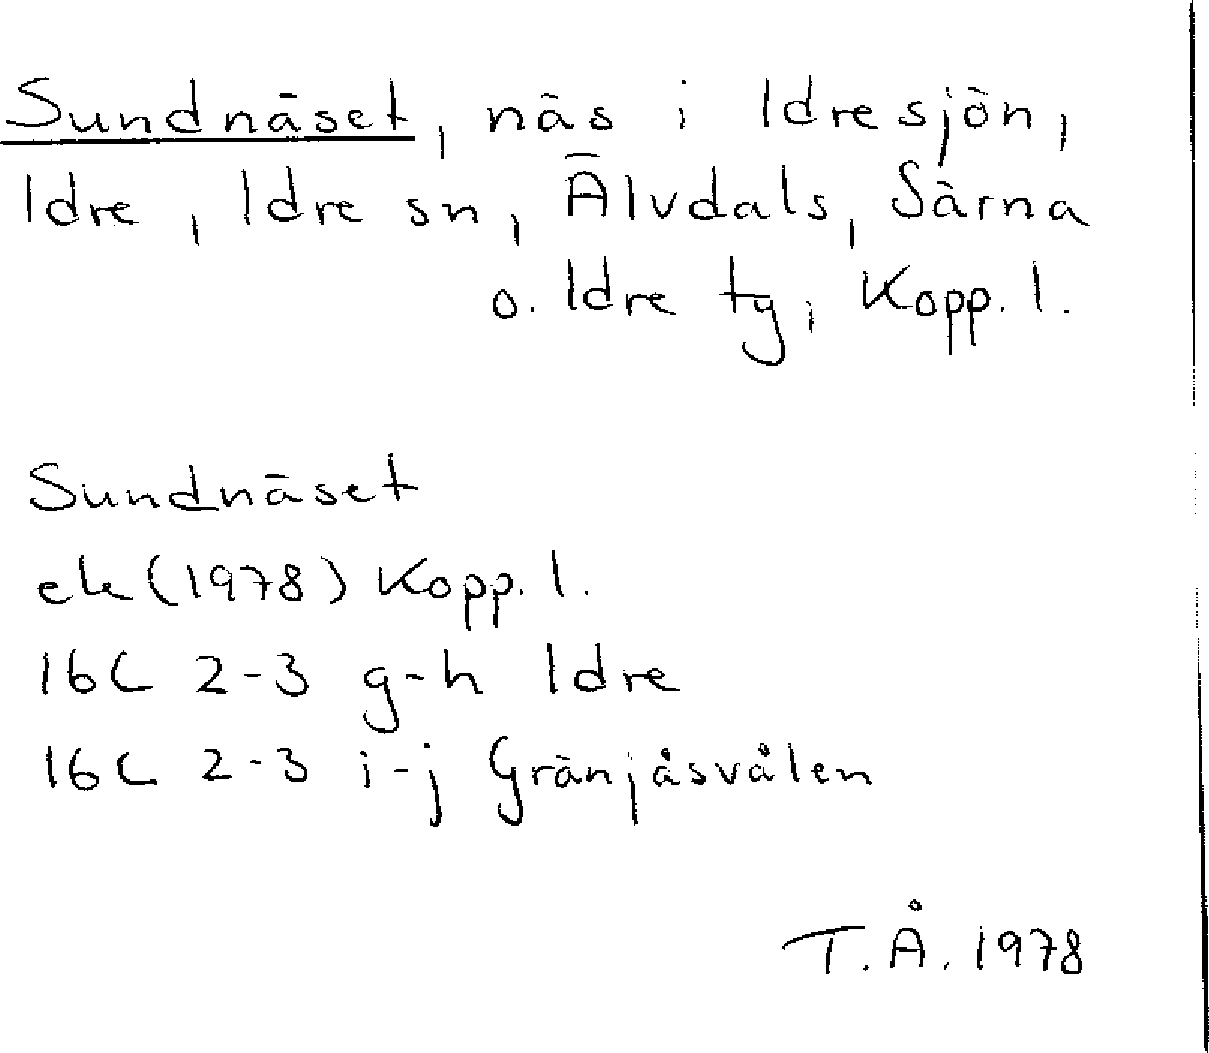 Sundnäset, näs i Idresjön,
Idre, Idre sn, Älvdals, Särna
o. Idre tg, Kopp. l.
Sundnäset
ek (1978) Kopp. l.
16C 2-3 g-h Idre
16C 2-3 i-j Gränjåsvålen
T. Å. 1978